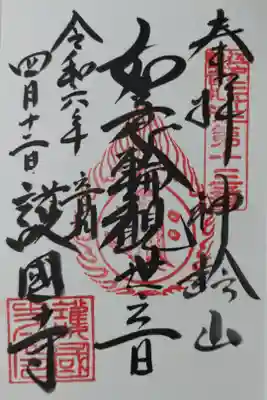 奉拝 神齢山
如意輪観世音
令和六年 音羽
四月十二日 護國寺